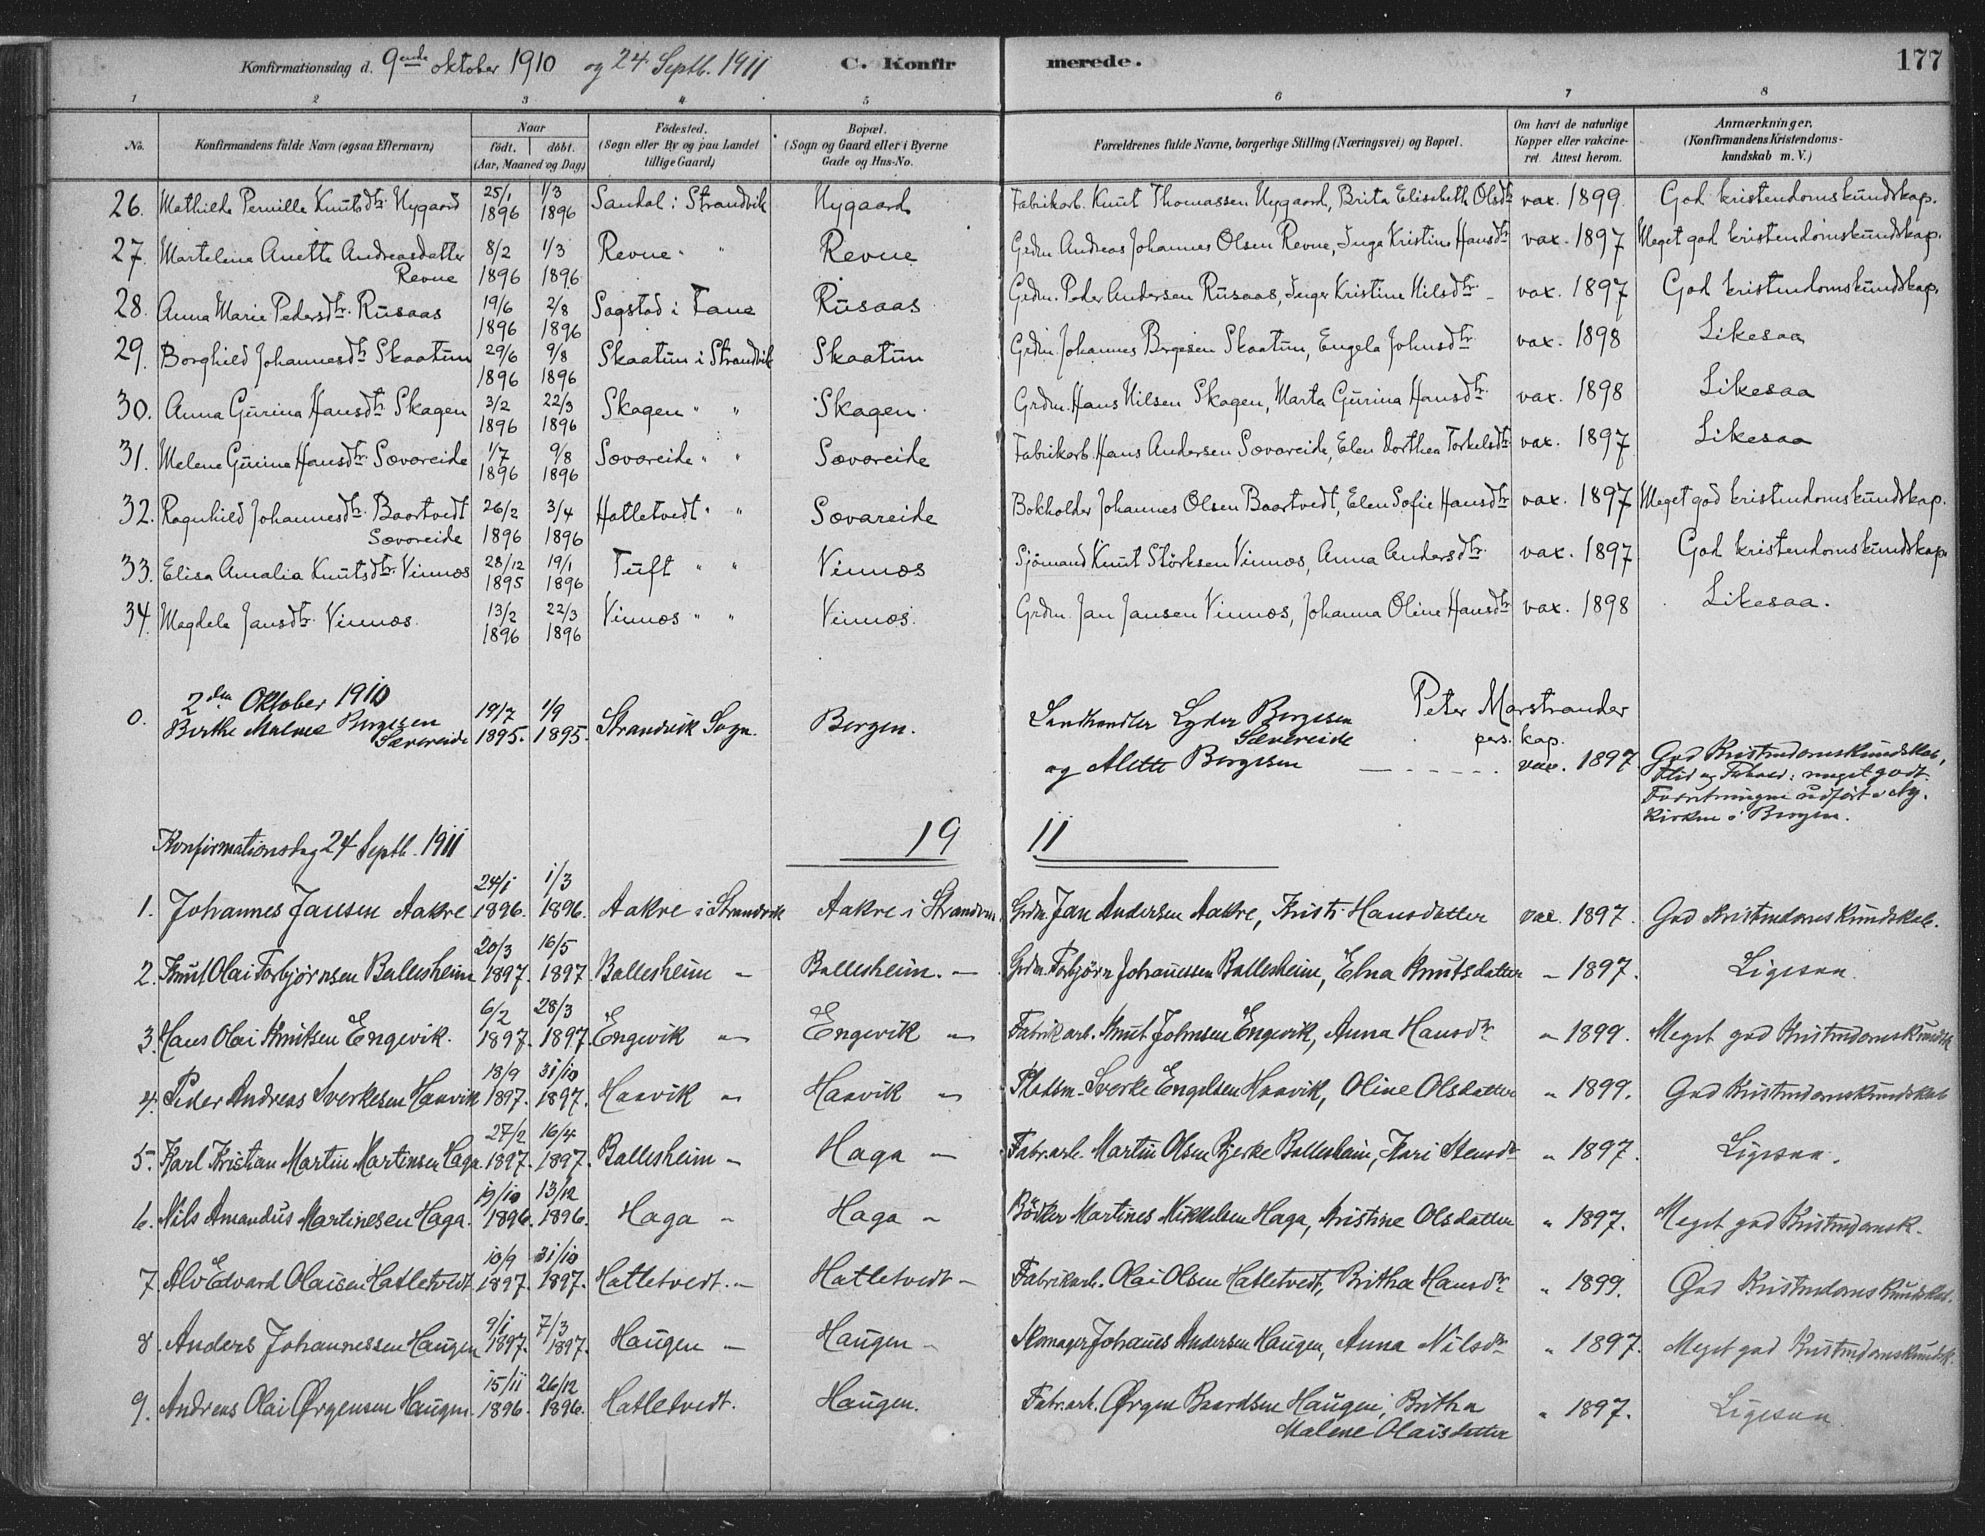 Konfirmationsdag d. 9ende oktober 1910 og 24 Septb. 1911 C. Konfir merede. 177
1 2 3 4 5 6 7 8
No. Konfirmandens fulde Navn (ogsaa Efternavn) Naar født. døbt. (Aar, Maaned og Dag) Fødested. (Sogn eller By og paa Landet tillige Gaard) Bopæl. (Sogn og Gaard eller i Byerne Gade og Hus-No. Forældrenes fulde Navne, borgerlige Stilling (Næringsvei) og Bopæl. Om havt de naturlige Kopper eller vakcineret. Attest herom. Anmærkninger. (Konfirmandens Kristendomskundskab m. V.)
26. Mathilde Pernille Knutsdtr. Nygaard 25/1 1896 1/3 1896 Sandal i Strandvik Nygaard Fabrikarb. Knut Thomassen Nygaard, Brita Elisabeth Olsdtr vax. 1899. God kristendomskundskap.
27. Martelena Anette Andreasdatter Revne 8/2 1896 1/3 1896 Revne " " Revne Grdm. Andreas Johannes Olsen Revne, Inga Kristine Hansdtr vax. 1897 Meget god kristendomskundskap.
28. Anna Marie Pedersdtr. Rusaas 19/6 1896 2/8 1896 Sagstad i Fane Rusaas Grdm. Peder Andersen Rusaas, Inger Kristine Nilsdtr. vax. 1897 God kristendomskundskap.
29. Borghild Johannesdtr Skaatun 29/6 1896 9/8 1896 Skaatun i Strandvik Skaatun Grdm. Johannes Børgesen Skaatun, Engela Johnsdtr vax. 1898 Likesaa
30. Anna Gurina Hansdtr. Skagen 3/2 1896 22/3 1896 Skagen " " Skagen. Grdm. Hans Nilsen Skagen, Marta Gurina Hansdtr. vax. 1898 Likesaa
31. Melene Gurine Hansdtr. Sævareide 1/7 1896 9/8 1896 Sævareide " " Sævareide Fabrikarb. Hans Andersen Sævareide, Elen Dorthea Torkelsdtr vax. 1897 Likesaa
32. Ragnhild Johannesdtr. Baartvedt Sævareide 26/2 1896 3/4 1896 Hatletvedt " " Sævareide Bokholder Johannes Olsen Baartvedt, Elen Sofie Hansdtr vax. 1897 Meget god kristendomskundskap.
33. Elisa Amalia Knutsdtr. Vinnes 28/12 1895 19/1 1896 Tuft " " Vinnes Sjømand Knut Størksen Vinnes, Anna Andersdtr. vax. 1897 God kristendomskundskap
34. Magdela Jansdtr. Vinnes. 13/2 1896 22/3 1896 Vinnes " " Vinnes. Grdm. Jan Jansen Vinnes, Johanna Oline Hansdtr vax. 1898 Likesaa.
Peter Marstrander
pers. kap.
2den Oktober 1910
0. Birthe Malene Børgesen Sævereide 19/7 1895. 1/9 1895. Strandvik Sogn. Bergen. Landhandler Lyder Børgesen Sævereide
og Alette Børgesen vax. 1897 God Kristendomskundskab, Flid og Forhold: meget godt. Forretningen udført i Ny. Kirken i Bergen.
Konfirmationsdag 24 Septb. 1911 19 11
1. Johannes Jansen Aakre 24/1 1896. 1/3 1896. Aakre i Strandvik Aakre i Strandvik Grdm. Jan Andersen Aakre, Kristi Hansdatter vax. 1897. God Kristendomskundskab.
2. Knut Olai Torbjørnsen Ballesheim 20/3 1897. 16/5 1897 Ballesheim " Ballesheim. " Grdm. Torbjørn Johannessen Ballesheim, Elna Knutsdatter " 1897. Ligesaa.
3. Hans Olai Knutsen Engevik. 6/2 1897. 28/3 1897. Engevik " Engevik " Fabrikarb. Knut Johnsen Engevik, Anna Hansdtr " 1899. Meget god Kristendomskundsk
4. Peder Andreas Sverkesen Haavik 18/9 1897. 31/10 1897. Haavik " Haavik " Pladsm. Sverke Engelsen Haavik, Oline Olsdatter " 1899. God Kristendomskundskab
5. Karl Kristian Martin Martinsen Haga 27/2 1897. 16/4 1897. Ballesheim " Haga " Fabr.arb. Martin Olsen Bjerke Ballesheim, Kari Stensdtr " 1897. Ligesaa.
6. Nils Amandus Martinesen Haga. 19/10 1896. 13/12 1896. Haga " Haga " Bødker Martines Mikkelsen Haga, Kristine Olsdatter " 1897. Meget god Kristendomsk.
7. Alv Edvard Olaisen Hatletvedt 10/9 1897. 31/10 1897. Hatletvedt. " Hatletvedt " Fabrikarb. Olai Olsen Hatletvedt, Britha Hansdtr " 1899. God Kristendomskundskab.
8. Anders Johannessen Haugen 9/1 1897. 7/3 1897. Haugen " Haugen " Skomager Johannes Andersen Haugen, Anna Nilsdtr " 1897. Meget god Kristendomskundsk.
9. Andreas Olai Ørgensen Haugen 15/11 1896. 26/12 1896. Hatletvedt. Haugen. Fabr.arb. Ørgen Baardsen Haugen, Britha Malene Olaisdatter " 1897. Ligesaa.